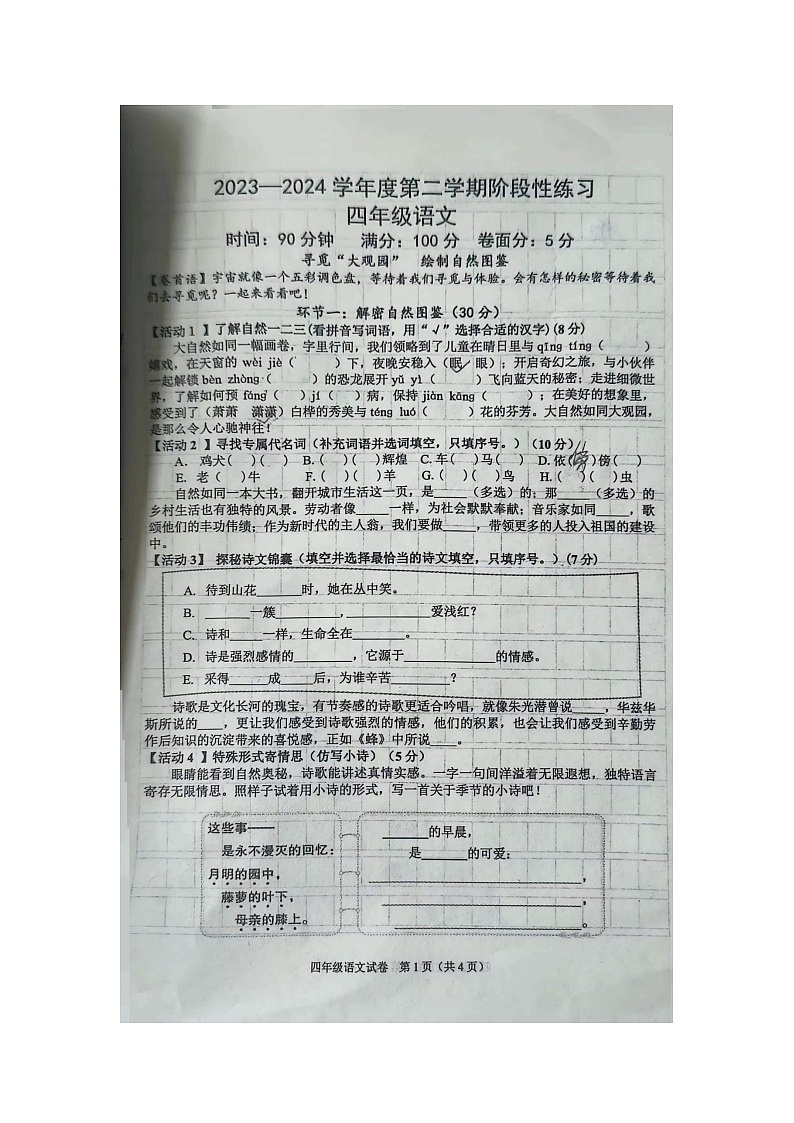 2023—2024 学年度第二学期阶段性练习
四年级语文
时间：90 分钟 满分：100 分 卷面分：5 分
寻觅“大观园” 绘制自然图鉴
【卷首语】宇宙就像一个五彩调色盘，等待着我们寻觅与体验。会有怎样的秘密等待着我
们去寻觅呢？一起来看看吧！
环节一：解密自然图鉴（30 分）
【活动 1 】了解自然一二三(看拼音写词语，用“√”选择合适的汉字)(8 分)
大自然如同一幅画卷，字里行间，我们领略到了儿童在晴日里与 qīng tíng（ ）
嬉戏，在天窗的 wèi jiè（ ）下，夜晚安稳入（眠 眼）；开启奇幻之旅，与小伙伴
一起解锁 bèn zhòng（ ）的恐龙展开 yǔ yì（ ）飞向蓝天的秘密；走进细微世
界，了解如何预 fáng（ ）jí（ ）病，保持 jiàn kāng（ ）；在美好的想象里，
感受到了（萧萧 潇潇）白桦的秀美与 téng luó（ ）花的芬芳。大自然如同大观园，
是那么令人心驰神往！
【活动 2 】寻找专属代名词（补充词语并选词填空，只填序号。）（10 分）
A. 鸡犬( )( ) B. ( )( )辉煌 C. 车( )马( ) D. 依( )傍( )
E. 老( )牛 F. ( )( )羊 G. ( )( )鸟 H. ( )( )虫
自然如同一本大书，翻开城市生活这一页，是____（多选）的；那____（多选）的
乡村生活也有独特的风景。劳动者像____一样，为社会默默奉献；音乐家如同____，歌
颂他们的丰功伟绩；作为新时代的主人翁，我们要做____，带领更多的人投入祖国的建设
中。
【活动 3】 探秘诗文锦囊（填空并选择最恰当的诗文填空，只填序号。）(7 分)
A. 待到山花______时，她在丛中笑。
B. ______一簇________，____________爱浅红？
C. 诗和____一样，生命全在_______。
D. 诗是强烈感情的________，它源于____________的情感。
E. 采得_____成_____后，为谁辛苦________？
诗歌是文化长河的瑰宝，有节奏感的诗歌更适合吟唱，就像朱光潜曾说____，华兹华
斯所说的____，更让我们感受到诗歌强烈的情感，他们的积累，也会让我们感受到辛勤劳
作后知识的沉淀带来的喜悦感，正如《蜂》中所说____。
【活动 4 】特殊形式寄情思（仿写小诗）（5 分）
眼睛能看到自然奥秘，诗歌能讲述真情实感。一字一句间洋溢着无限遐想，独特语言
寄存无限情思。照样子试着用小诗的形式，写一首关于季节的小诗吧！
这些事——
是永不漫灭的回忆：
月明的园中，
藤萝的叶下，
母亲的膝上。
______的早晨，
是______的可爱：
____________________________，
__________________________，
__________________________。
四年级语文试卷 第 1 页（共 4 页）